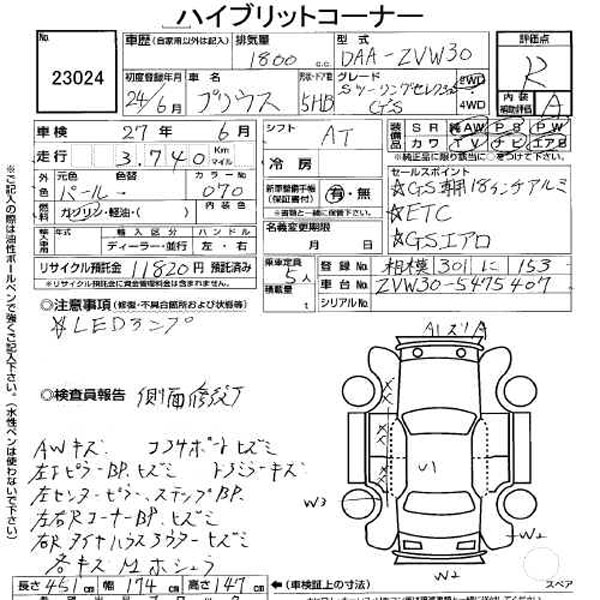 ハイブリットコーナー
No.
23024
車歴(自家用以外は記入)
排気量
1800 c.c.
型式
DAA-ZVW30
評価点
R
内装補助評価
A
初度登録年月
24/6月
車名
プリウス
形状・ドア数
5HB
グレード
Sツーリングセレクション
G'S
2WD
4WD
車検 27年 6月
走行 3.740 Km マイル
シフト
AT
冷房
装備品
SR 純AW PS PW
カワ TV ナビ エアB
※純正品に限り該当に○をつけて下さい。
外色
元色 色替 カラーNo
パール 070
燃料
ガソリン・軽油・( )
内装色
輸入車用
年式
輸入区分
ハンドル
ディーラー・並行
左・右
リサイクル預託金 11820円 預託済み
※リサイクル預託金に資金管理料金は含まれません。
新車整備手帳(保証書付)
有・無
※書類と一緒に保管下さい。
名義変更期限
月 日
乗車定員
5人
積載量
t
セールスポイント
☆G'S専用18インチアルミ
☆ETC
☆G'Sエアロ
登録No. 相模 301 に 153
車台No. ZVW30-5475407
シリアルNo.
◎注意事項(修復・不具合箇所および状態等)
☆LEDランプ
◎検査員報告
側面修復丁
AWキズ コアサポートヒズミ
左FピラーBP.ヒズミ トランクキズ
左センターピラー、ステップBP.
左右RコーナーBP ヒズミ
右RタイヤハウスアウターヒズミE
各キズ
A1 ズリA
U1
W3
W2
W2
長さ 451 cm 幅 174 cm 高さ 147 cm ←(車検証上の寸法)
スペア
※ご記入の際は油性ボールペンで強くご記入下さい。(水性ペンは使わないで下さい)